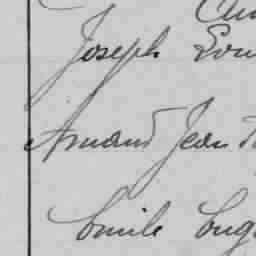 Joseph Lou
Armand Jean
Emile Eug